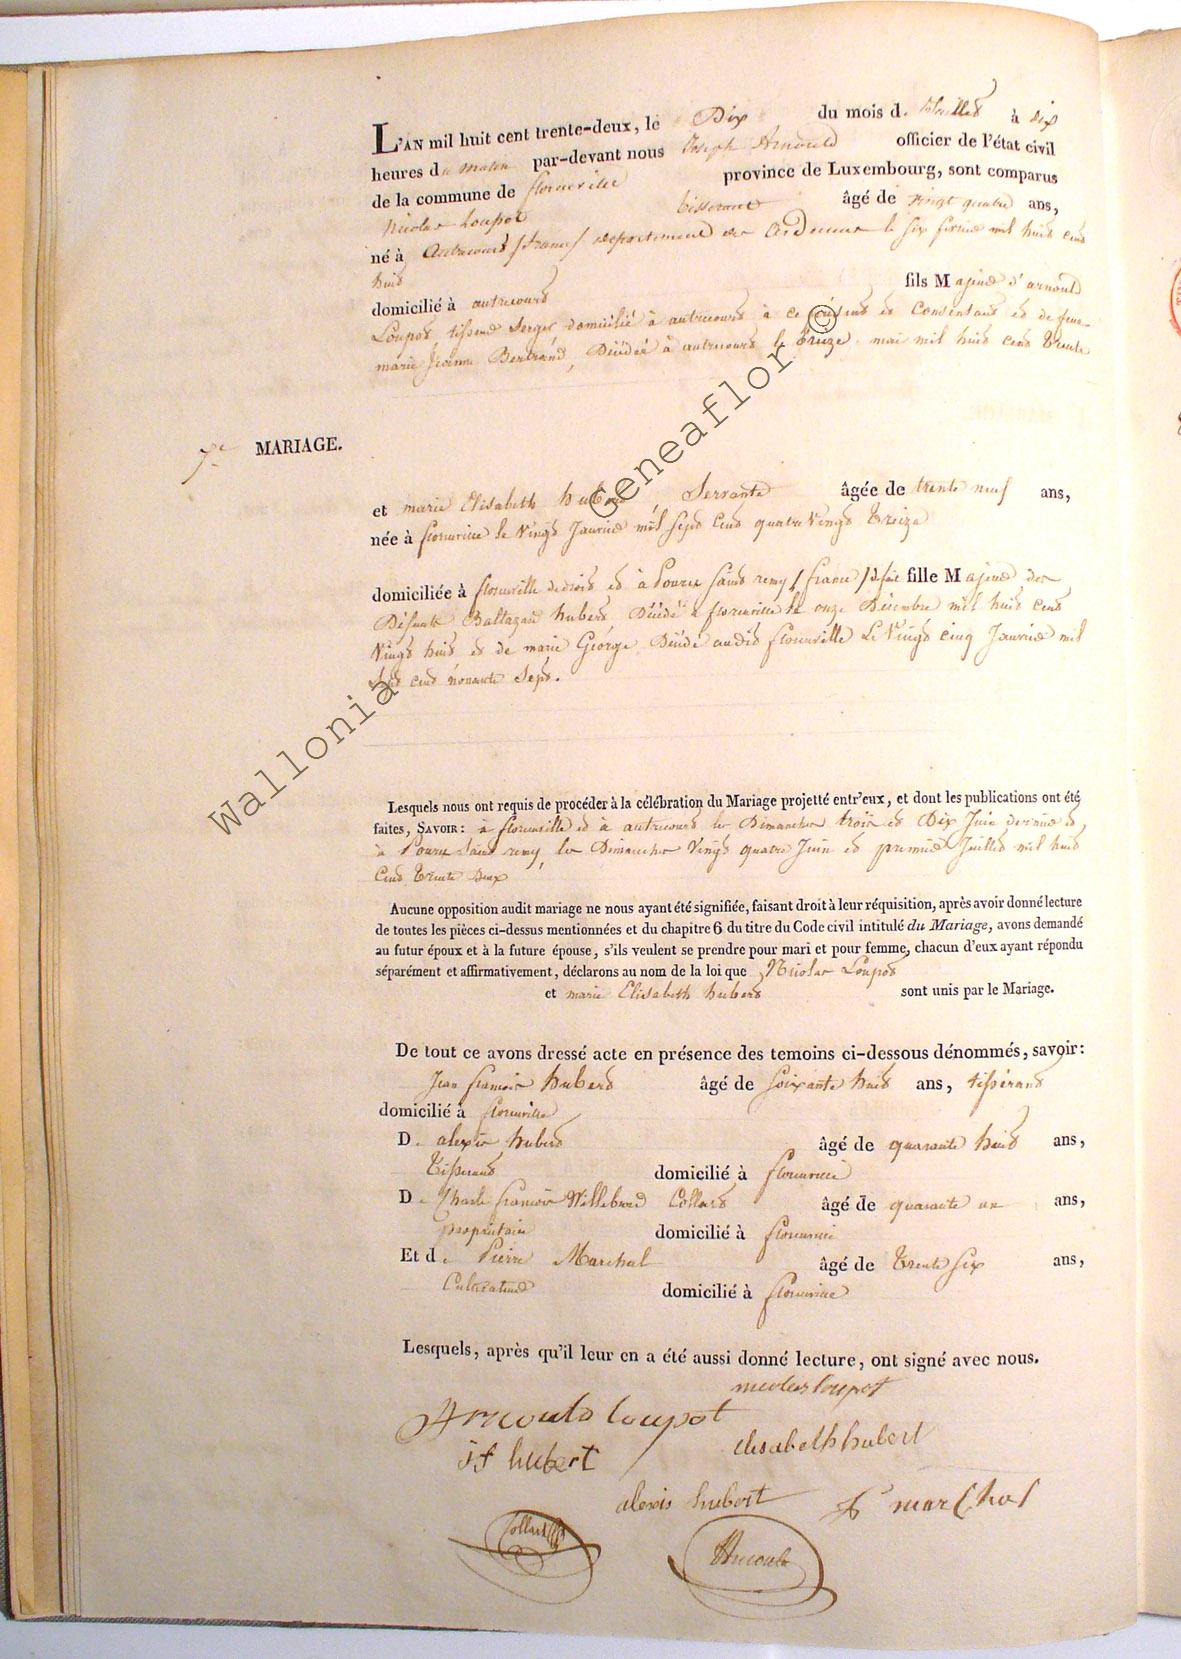 L'AN mil huit cent trente-deux, le Dix du mois de Juillet à dix
heures du matin par-devant nous Joseph Arnould officier de l'état civil
de la commune de florenville province de Luxembourg, sont comparus
Nicolas Loupot tisserand âgé de vingt quatre ans,
né à Autrecourt / france / departement des Ardennes le six fevrier mil huit cent
huit
domicilié à autrecourt fils Majeur d'arnould
Loupot, tisseur Serger domicilié à autrecourt à ce présent et consentant et de feue
marie Jeanne Bertrand, Décédée à autrecourt le treize mai mil huit cent trente
7e MARIAGE.
et marie Elisabeth hubert, Servante âgée de trente neuf ans,
née à florenville le Vingt Janvier mil sept cent quatre Vingt treize
domiciliée à florenville de droit et à Pouru Saint remy / france / de fait fille Majeure des
Défunts Baltazar hubert Décédé à florenville le onze Décembre mil huit cent
Vingt huit et de marie George Décédé audit florenville Le Vingt cinq Janvier mil
Sept cent nonante Sept.
Lesquels nous ont requis de procéder à la célébration du Mariage projetté entr'eux, et dont les publications ont été
faites, SAVOIR: à florenville et à autrecourt les Dimanches trois et Dix Juin dernier et
à Pouru Saint remy, les Dimanches Vingt quatre Juin et premier Juillet mil huit
Cent trente Deux
Aucune opposition audit mariage ne nous ayant été signifiée, faisant droit à leur réquisition, après avoir donné lecture
de toutes les pièces ci-dessus mentionnées et du chapitre 6 du titre du Code civil intitulé du Mariage, avons demandé
au futur époux et à la future épouse, s'ils veulent se prendre pour mari et pour femme, chacun d'eux ayant répondu
séparément et affirmativement, déclarons au nom de la loi que Nicolas Loupot
et marie Elisabeth hubert sont unis par le Mariage.
De tout ce avons dressé acte en présence des temoins ci-dessous dénommés, savoir:
Jean françois hubert âgé de soixante huit ans, tissérand
domicilié à florenville
De alexis hubert âgé de quarante huit ans,
Tisserand domicilié à florenville
De Charle françois Willebrord Collard âgé de quarante un ans,
propriétaire domicilié à florenville
Et de Pierre Marchal âgé de trente six ans,
Cultivateur domicilié à florenville
Lesquels, après qu'il leur en a été aussi donné lecture, ont signé avec nous.
nicolas loupot
Arnould loupot
elisabeth hubert
jf hubert
alexis hubert
P marchal
Collard
Arnould
Wallonia Geneaflor ©